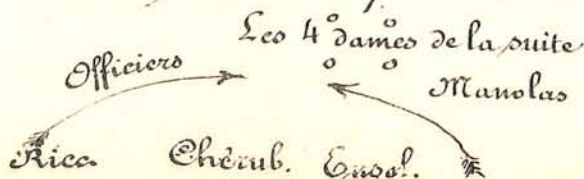 Les 4 dames de la suite
Officiers
Manolas
Chérub. Ensol.